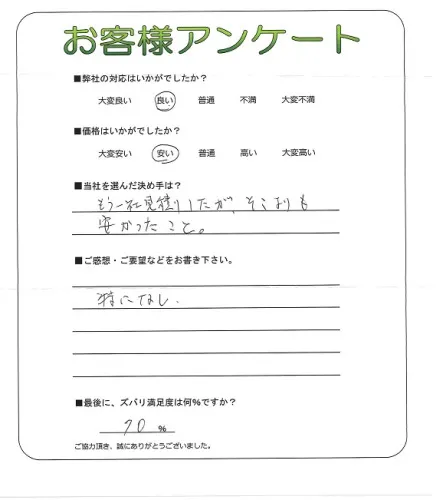 お客様アンケート
■弊社の対応はいかがでしたか?
大変良い 良い 普通 不満 大変不満
■価格はいかがでしたか?
大変安い 安い 普通 高い 大変高い
■当社を選んだ決め手は?
もう一社見積りしたが、そこよりも
安かったこと。
■ご感想・ご要望などをお書き下さい。
特になし.
■最後に、ズバリ満足度は何%ですか?
90 %
ご協力頂き、誠にありがとうございました。